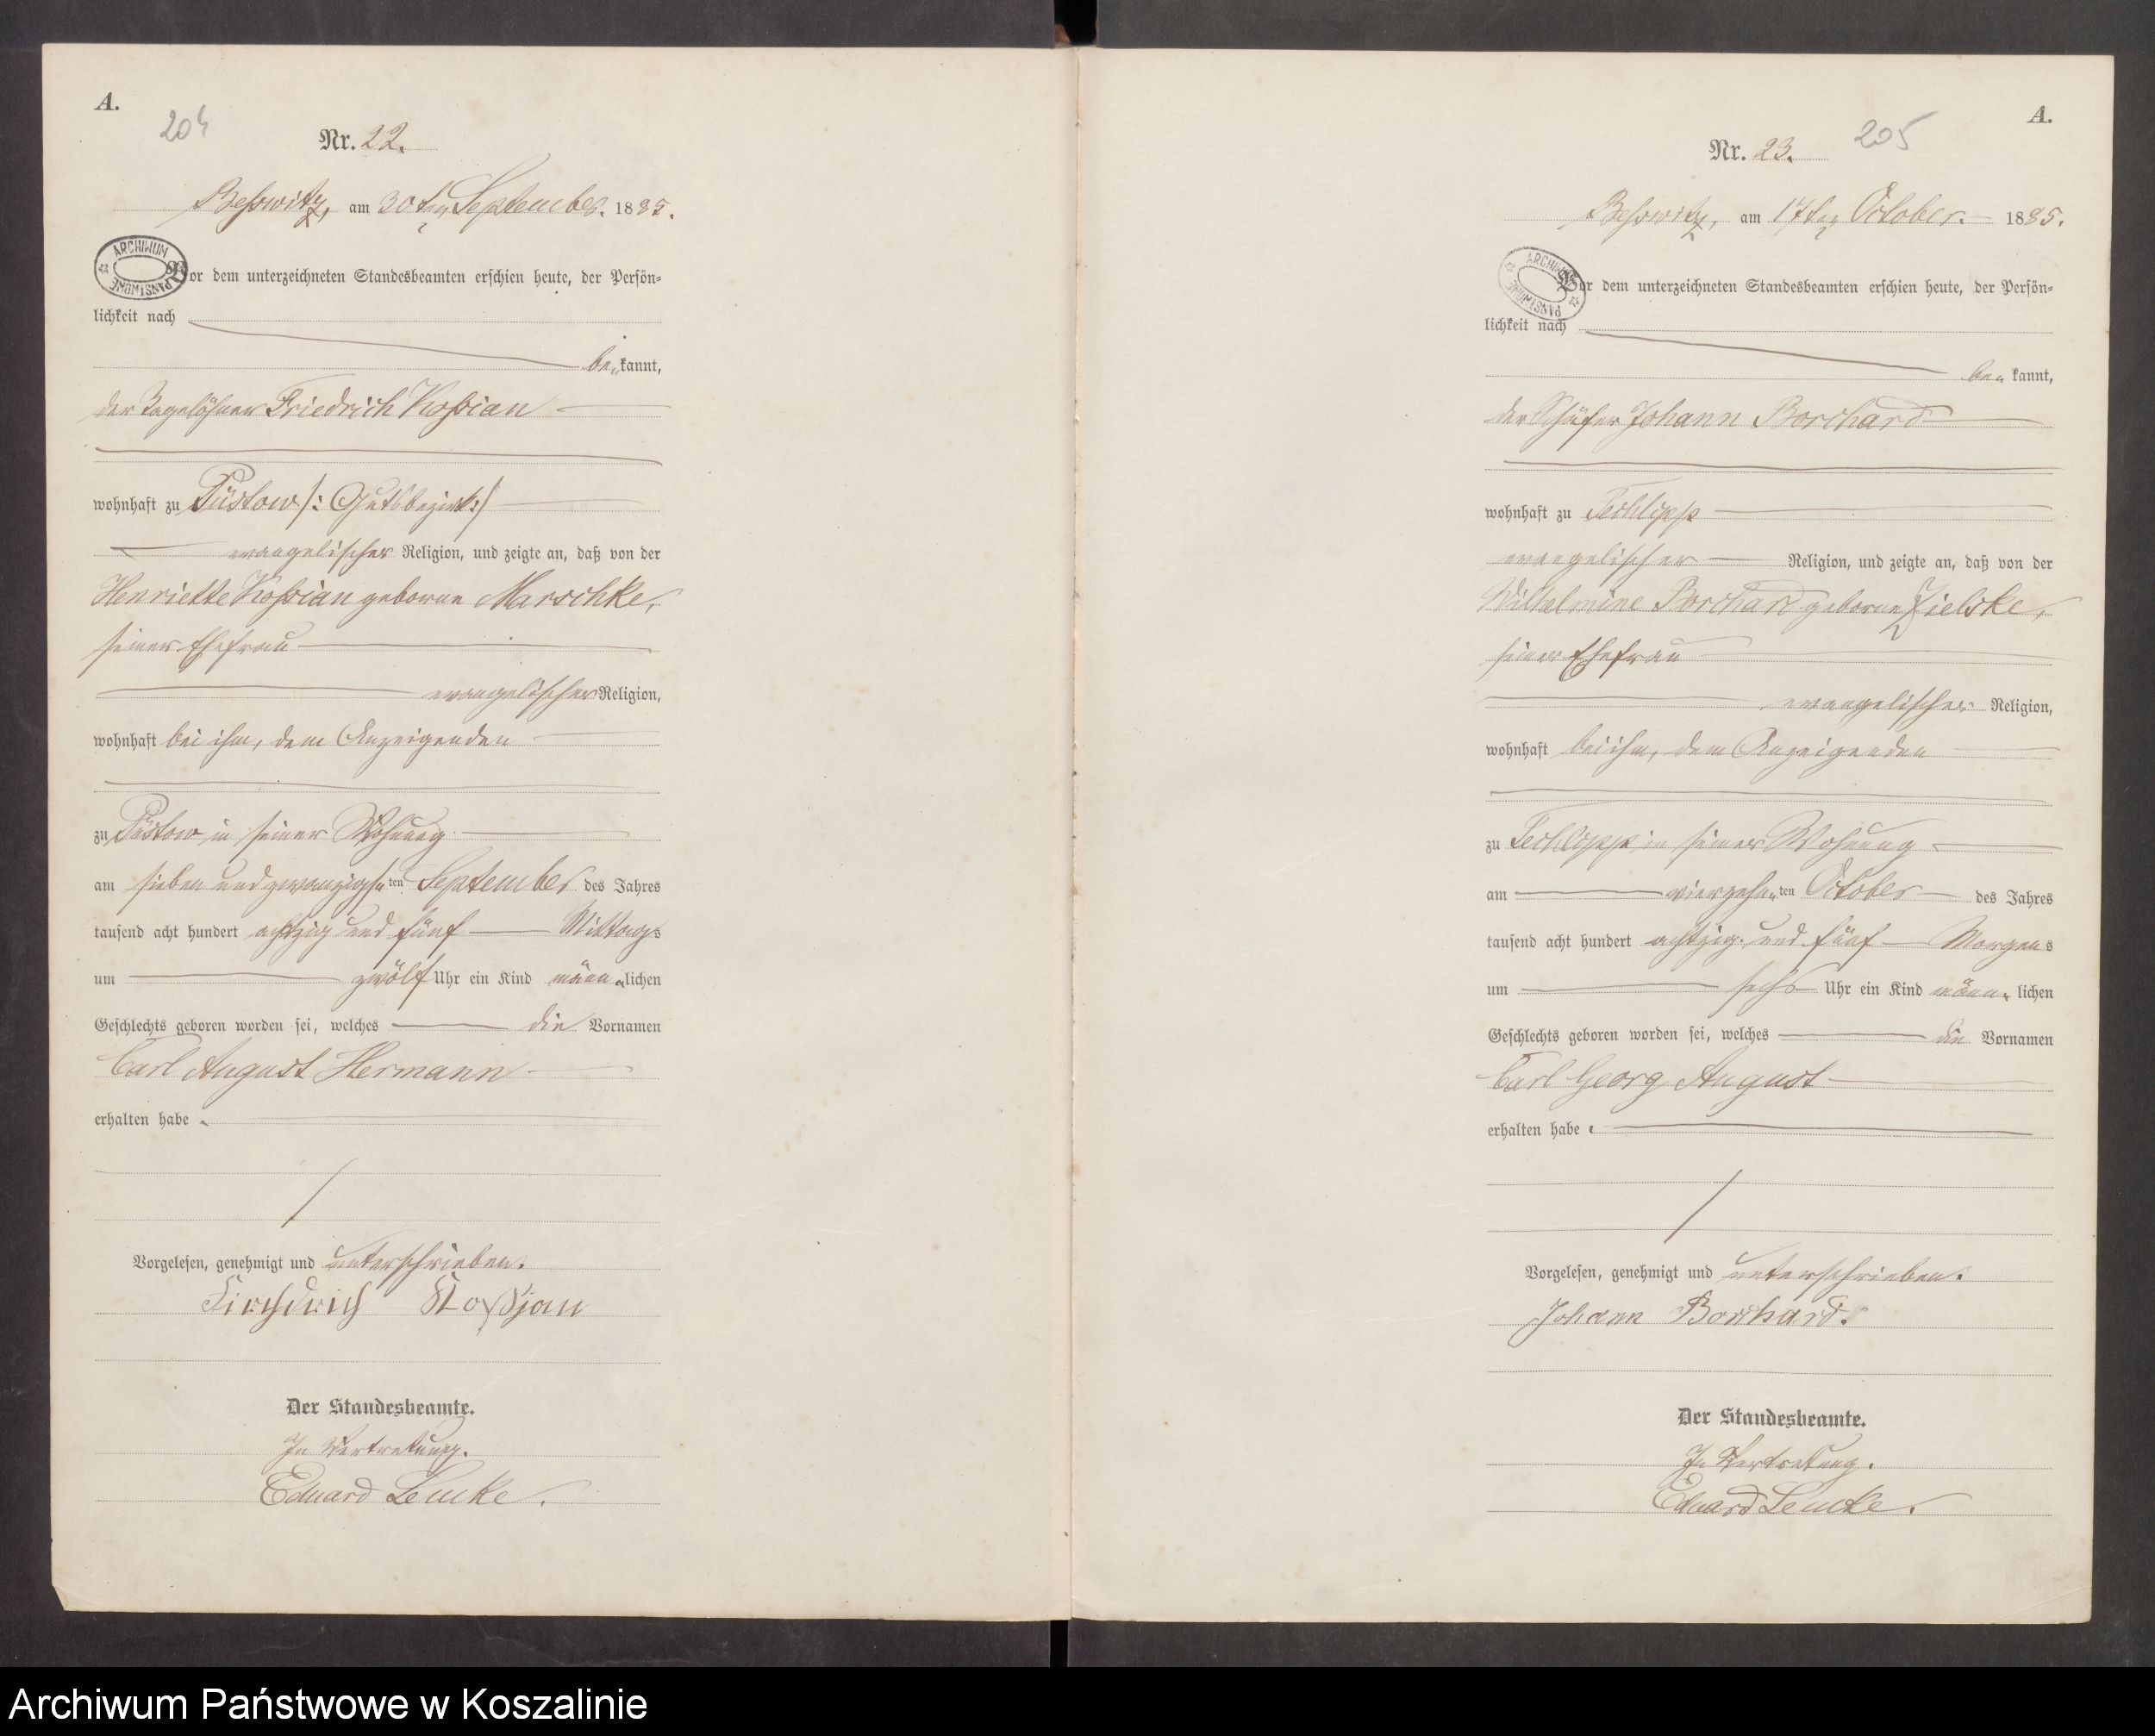 A.
204
Nr. 22.
Beßwitz, am 30ten September. 1885.
ARCHIWUM PAŃSTWOWE
Vor dem unterzeichneten Standesbeamten erschien heute, der Persön-
lichkeit nach
bekannt,
der Tagelöhner Friedrich Koßian
wohnhaft zu Püstow /: Gutsbezirk :/
evangelischer Religion, und zeigte an, daß von der
Henriette Koßian geborne Marschke,
seiner Ehefrau
evangelischer Religion,
wohnhaft bei ihm, dem Anzeigenden
zu Püstow in seiner Wohnung
am sieben und zwanzigsten September des Jahres
tausend acht hundert achtzig und fünf Mittags
um zwölf Uhr ein Kind männlichen
Geschlechts geboren worden sei, welches die Vornamen
Carl August Hermann
erhalten habe.
Vorgelesen, genehmigt und unterschrieben.
Koßjan
Der Standesbeamte.
In Vertretung.
Eduard Lemke.
A.
205
Nr. 23.
Beßwitz, am 17ten October. 1885.
ARCHIWUM PAŃSTWOWE
Vor dem unterzeichneten Standesbeamten erschien heute, der Persön-
lichkeit nach
bekannt,
der Schäfer Johann Borchard
wohnhaft zu Techlipp
evangelischer Religion, und zeigte an, daß von der
Wilhelmine Borchard geborne Zielske,
seiner Ehefrau
evangelischer Religion,
wohnhaft bei ihm, dem Anzeigenden
zu Techlipp in seiner Wohnung
am vierzehnten October des Jahres
tausend acht hundert achtzig und fünf Morgens
um sechs Uhr ein Kind männlichen
Geschlechts geboren worden sei, welches die Vornamen
Carl Georg August
erhalten habe.
Vorgelesen, genehmigt und unterschrieben.
Johann Borchard.
Der Standesbeamte.
In Vertretung.
Eduard Lemke.
Archiwum Państwowe w Koszalinie